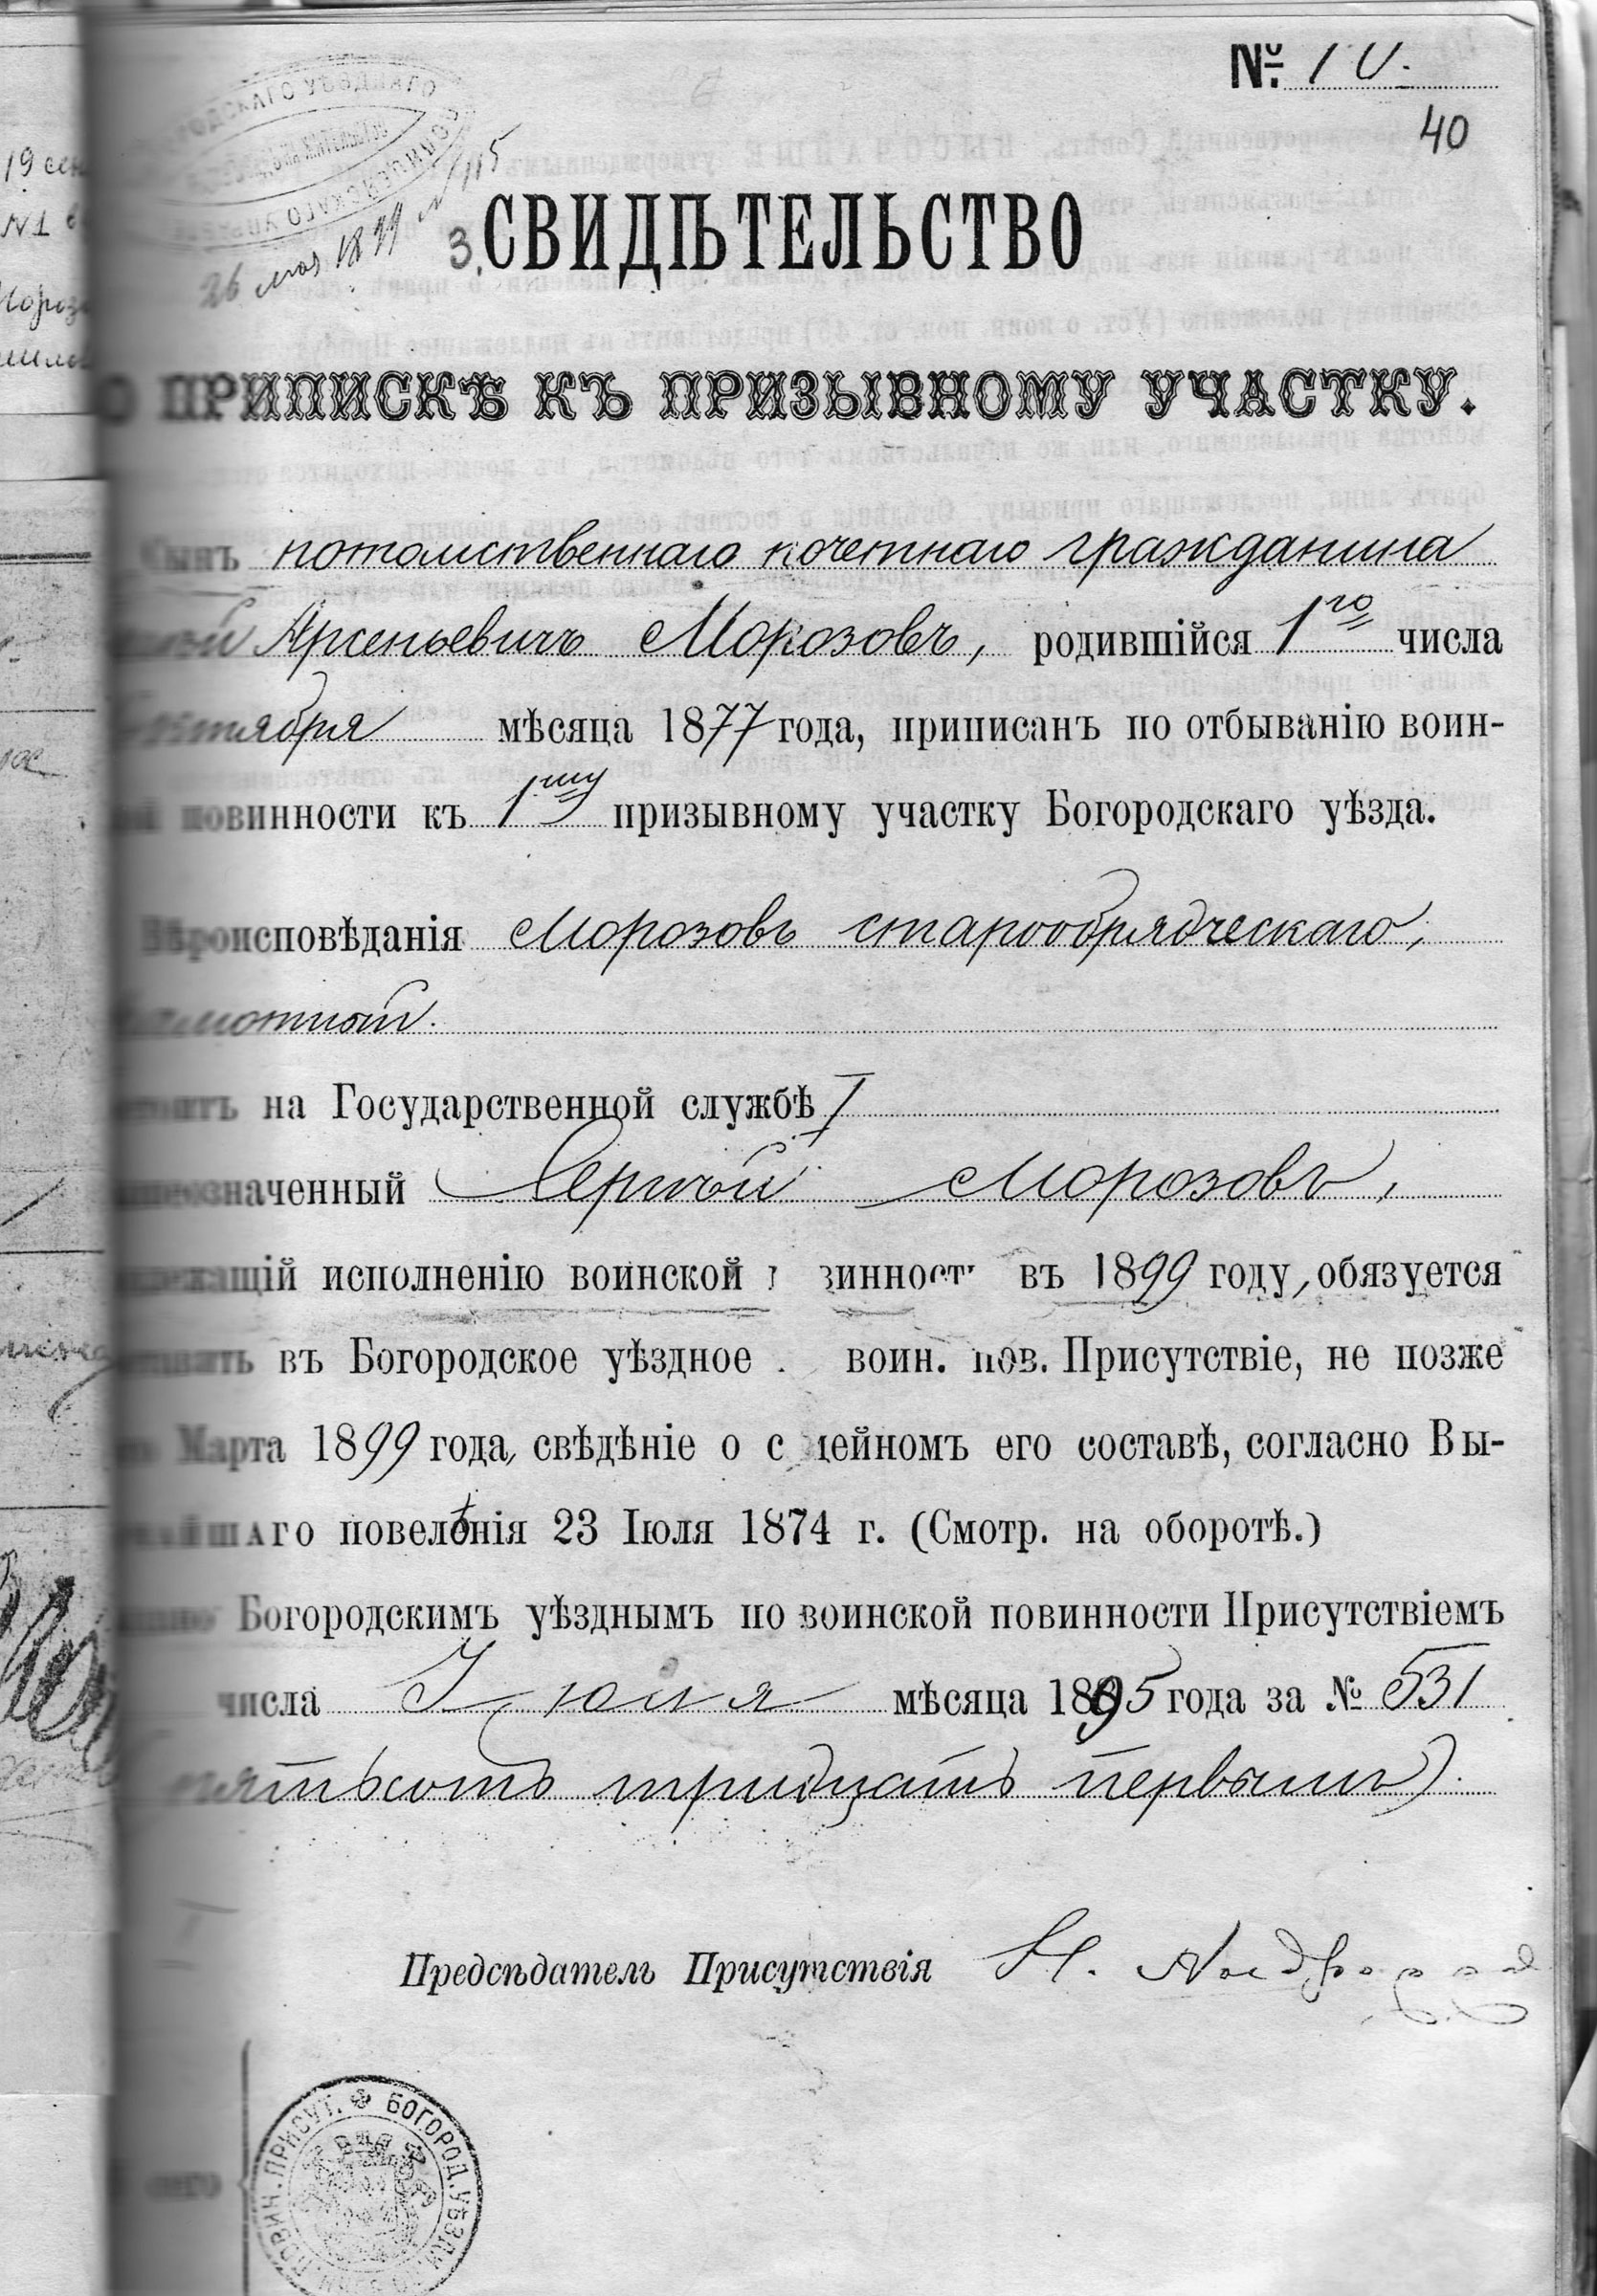 № 10.
40
19 сен
N1 в
26 мая 1899 № 1115
3. СВИДѢТЕЛЬСТВО
О ПРИПИСКѢ КЪ ПРИЗЫВНОМУ УЧАСТКУ.
Сынъ потомственнаго почетнаго гражданина
Арсеньевичъ Морозовъ, родившійся 1го числа
мѣсяца 1877 года, приписанъ по отбыванію воин-
повинности къ 1му призывному участку Богородскаго уѣзда.
Вѣроисповѣданія Морозовъ старообрядческаго,
грамотный.
на Государственной службѣ
означенный Сергѣй Морозовъ,
лежащій исполненію воинской винност въ 1899 году, обязуется
ставить въ Богородское уѣздное воин. пов. Присутствіе, не позже
Марта 1899 года, свѣдѣніе о с мейномъ его составѣ, согласно Вы-
чайшаго повелѣнія 23 Іюля 1874 г. (Смотр. на оборотѣ.)
Богородскимъ уѣзднымъ по воинской повинности Присутствіемъ
числа Іюля мѣсяца 1895 года за № 531
пятьсотъ тридцать первымъ).
Предсѣдатель Присутствія
ПОВИН. ПРИСУТ. БОГОРОД. УѢЗДН.